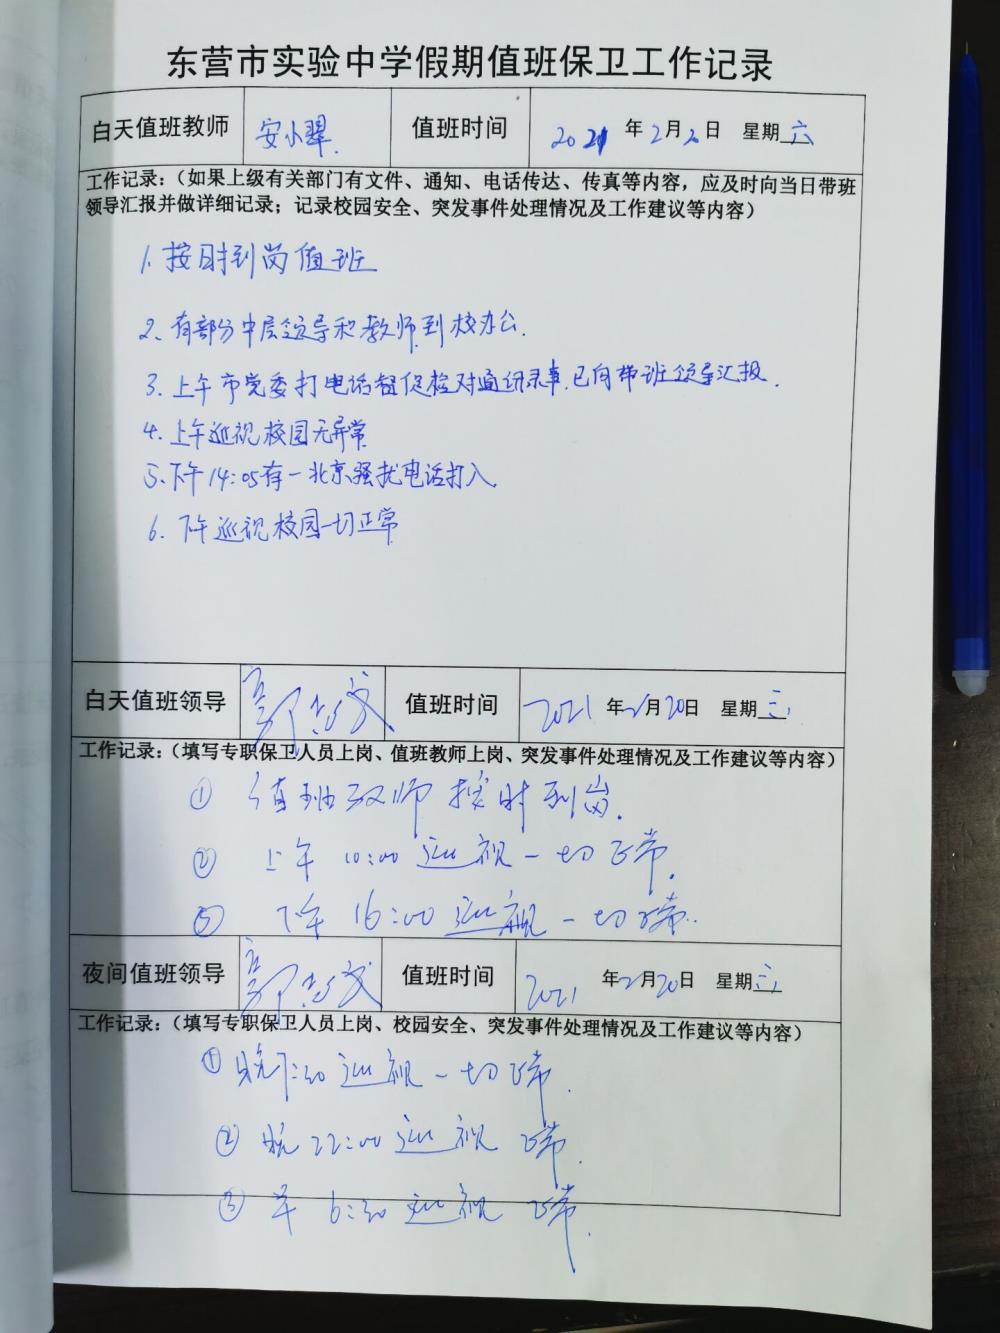 东营市实验中学假期值班保卫工作记录
白天值班教师 安小翠. 值班时间 2021 年2月20日 星期六
工作记录：（如果上级有关部门有文件、通知、电话传达、传真等内容，应及时向当日带班
领导汇报并做详细记录；记录校园安全、突发事件处理情况及工作建议等内容）
1. 按时到岗值班
2、有部分中层领导和教师到校办公.
3. 上午市党委打电话督促核对通讯录事.已向带班领导汇报.
4. 上午巡视校园无异常
5. 下午14:05有一北京骚扰电话打入
6. 下午巡视校园一切正常
白天值班领导 值班时间 2021 年2月20日 星期六
工作记录：（填写专职保卫人员上岗、值班教师上岗、突发事件处理情况及工作建议等内容）
① 值班教师按时到岗.
② 上午10:00巡视一切正常.
③ 下午16:00巡视一切正常.
夜间值班领导 值班时间 2021 年2月20日 星期六
工作记录：（填写专职保卫人员上岗、校园安全、突发事件处理情况及工作建议等内容）
① 晚 巡视一切正常.
② 晚22:00巡视正常.
③ 早6:30巡视正常.